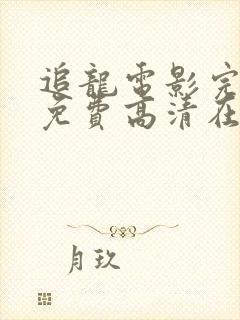 追龍電影完
免費高清在
月玖